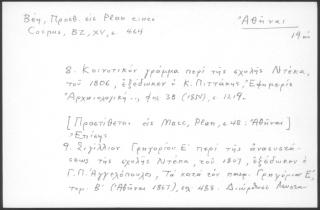 Βέη, Προσθ. εἰς Plan eines
Corpus, BZ, XV, σ. 464
Ἀθῆναι
19
8. Κοινοτικὸν γράμμα περὶ τῆς σχολῆς Ντέκα,
τοῦ 1806, ἐξέδωκεν ὁ Κ. Πιττάκης, Ἐφημερὶς
Ἀρχαιολογικὴ.., φυλ. 38 (1854), σ. 1219.
[Προστίθεται εἰς Marc, Plan, σ. 48: Ἀθῆναι]
Ἐπίσης
9. Σιγίλλιον Γρηγορίου Ε΄ περὶ τῆς ἀνασυστά-
σεως τῆς σχολῆς Ντέκα, τοῦ 1807, ἐξέδωκεν ὁ
Γ. Π. Ἀγγελόπουλος, Τὰ κατὰ τὸν Γρηγόριον Ε΄,
τομ. Β΄ (Ἀθῆναι 1865), σ. 488. Διώρθωσε